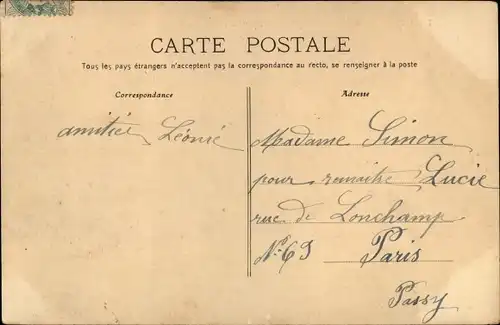 CARTE POSTALE
Tous les pays étrangers n'acceptent pas la correspondance au recto, se renseigner à la poste
Correspondance
amitiés Léonie
Adresse
Madame Simon
pour remaitre Lucie
rue de Lonchamp
No 63 Paris
Passy